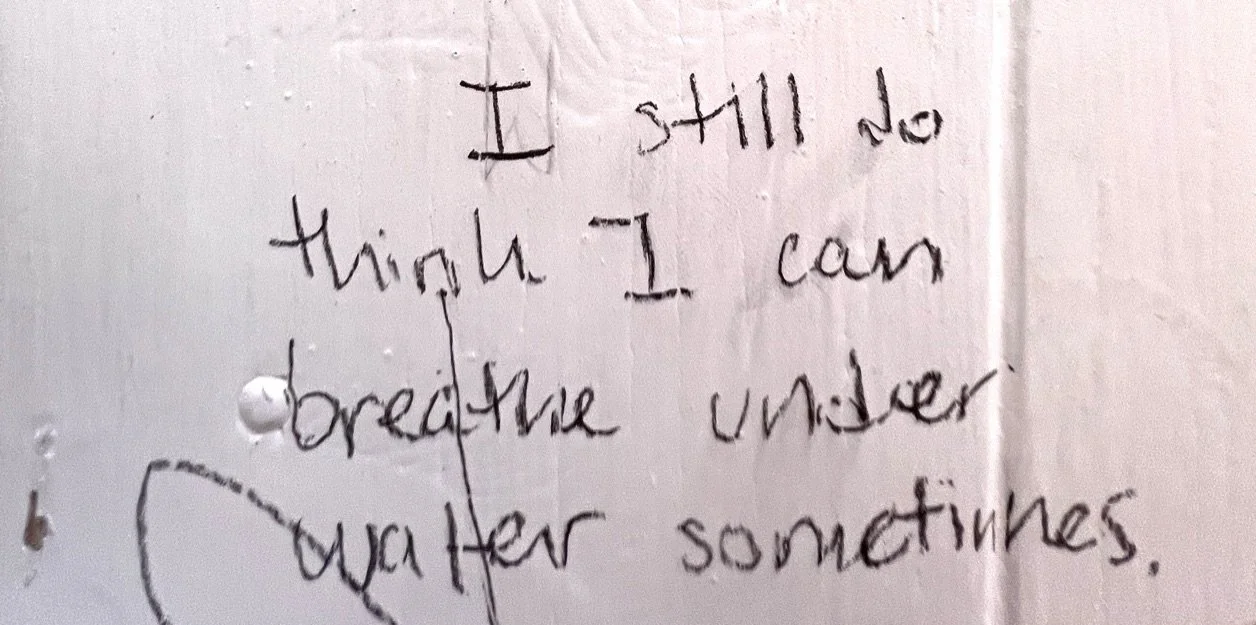 I still do
think I can
breathe under
water sometimes.